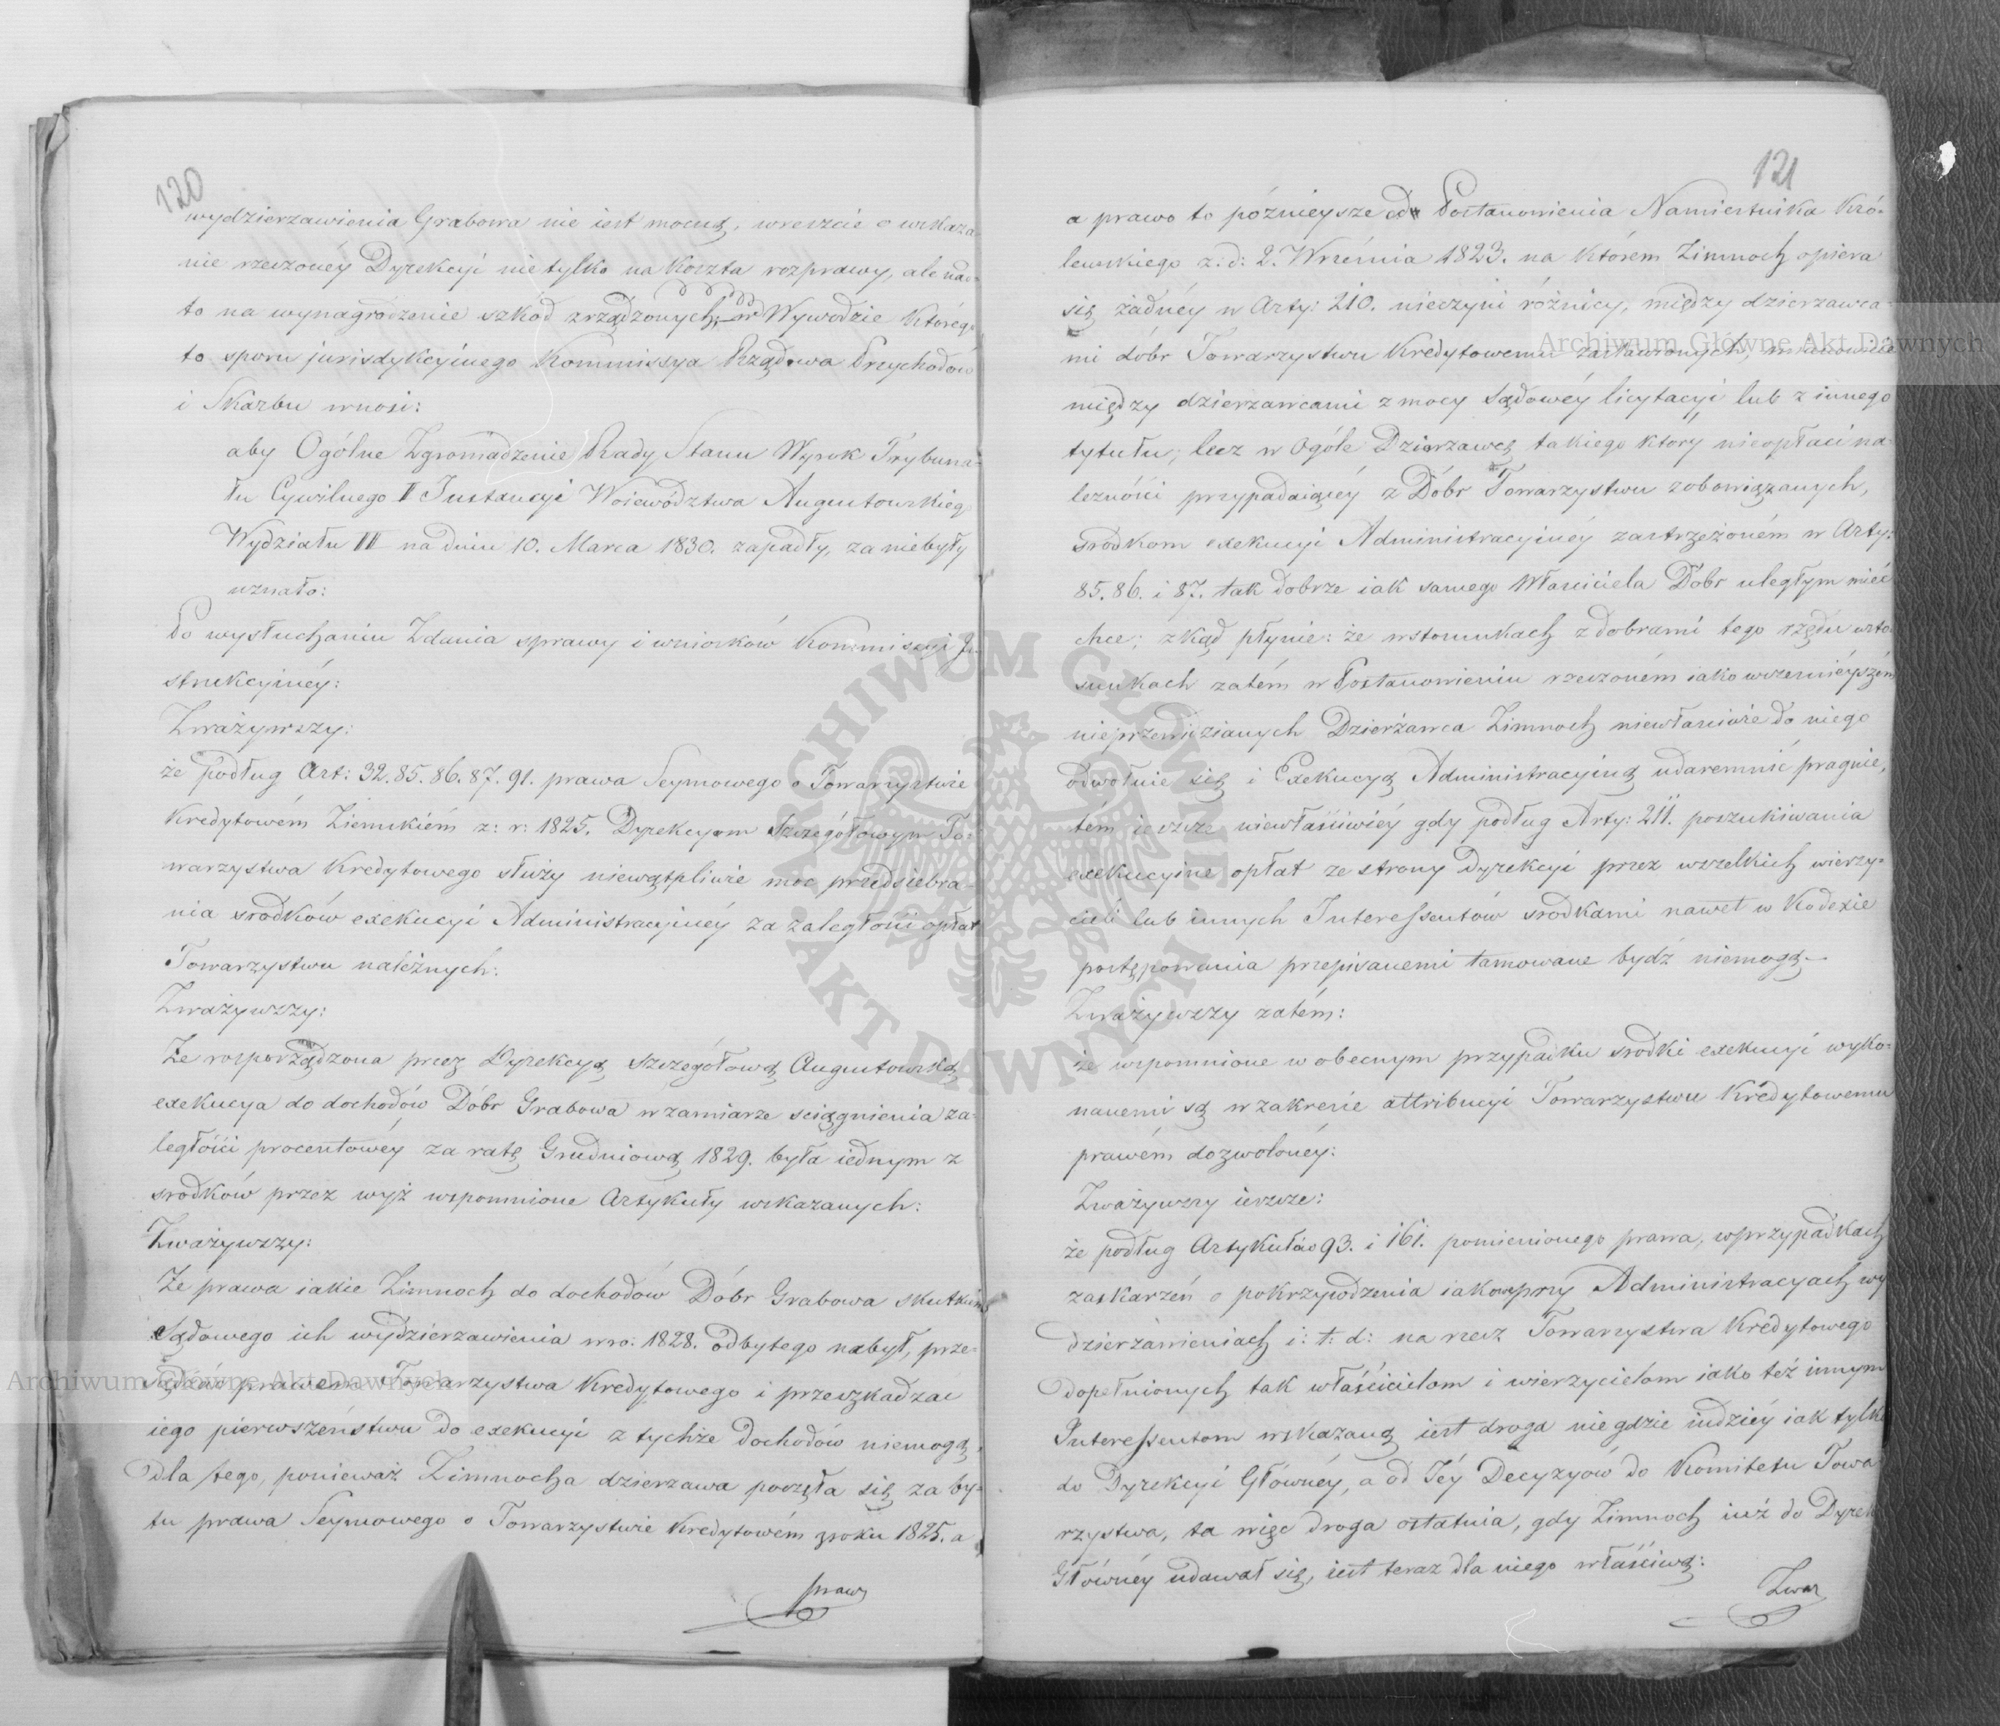 120
wydzierzawienia Grabowa nie iest mocną, wreszcie o wskaza-
nie rzeczonéy Dyrekcyi nietylko na Koszta rozprawy, ale nad-
to na wynagrodzenie szkód zrządzonych; w Wywodzie którego
to sporu jurisdykcyinego Kommissya Rządowa Przychodów
i Skarbu wnosi:
aby Ogólne Zgromadzenie Rady Stanu Wyrok Trybuna-
łu Cywilnego II Instancyi Woiewództwa Augustowskiego
Wydziału III na dniu 10. Marca 1830. zapadły, za niebyły
uznało:
Po wysłuchaniu Zdania sprawy i wniosków Kommissyi In-
strukcyinéy:
Zważywszy:
że podług Art: 32. 85. 86. 87. 91. prawa Seymowego o Towarzystwie
Kredytowém Ziemskiém z: r: 1825. Dyrekcyom Szczegółowym To-
warzystwa Kredytowego służy niewątpliwie moc przedsiebra-
nia srodków exekucyi Administracyinéy za zaległości opłat
Towarzystwu należnych:
Zważywszy:
Ze rosporządzona przez Dyrekcyą Szczegółową Augustowską
exekucya do dochodów Dóbr Grabowa w zamiarze sciągnienia za-
ległości procentowéy za ratę Grudniową 1829. była iednym z
srodków przez wyż wspomnione Artykuły wskazanych:
Zważywszy:
Ze prawa iakie Zimnoch do dochodów Dóbr Grabowa skutkiem
Sądowego ich wydzierzawienia w ro: 1828. odbytego nabył, prze-
sądzać prawem Towarzystwa Kredytowego i przeszkadzać
iego pierwszeństwu do exekucyi z tychże dochodów niemogą,
dla tego, ponieważ Zimnocha dzierzawa poczęła się za by-
tu prawa Seymowego o Towarzystwie Kredytowém z roku 1825. a
prawo
121
a prawo to późnieysze od Postanowienia Namiestnika Kró-
lewskiego z: d: 2. Września 1823. na którém Zimnoch opiera
się żadnéy w Arty: 210. nieczyni różnicy, między dzierzawca-
mi dóbr Towarzystwu Kredytowemu zastawionych, mianowicie
między dzierzawcami z mocy Sądowéy licytacyi lub z innego
tytułu; lecz w Ogóle Dzierzawcę takiego który nieopłaci na-
lezności przypadaiącéy z Dóbr Towarzystwu zobowiązanych,
srodkom exekucyi Administracyinéy zastrzeżoném w Arty:
85. 86. i 87. tak dobrze iak samego Właściciela Dóbr uległym mieć
chce; zkąd płynie: że w stosunkach z dobrami tego rzędu w sto-
sunkach zatém w Postanowieniu rzeczoném iako wcześnieyszém
nieprzewidzianych Dzierżawca Zimnoch niewłaściwie do niego
odwołuie się i Exekucyą Administracyiną udaremnić pragnie,
tém ieszcze niewłaściwiéy gdy podług Arty: 211. poszukiwania
exekucyine opłat ze strony Dyrekcyi przez wszelkich wierzy-
cieli lub innych Interessentów srodkami nawet w Kodexie
postępowania przepisanemi tamowane bydź niemogą.
Zważywszy zatém:
że wspomnione w obecnym przypadku srodki exekucyi wyko-
nanemi są w zakresie attribucyi Towarzystwu Kredytowemu
prawém dozwolonéy:
Zważywszy ieszcze:
że podług Artykułów 93. i 161. pomienionego prawa, w przypadkach
zaskarzeń o pokrzywdzenia iakowe przy Administracyach wy-
dzierżawieniach i: t: d: na rzecz Towarzystwa Kredytowego
dopełnionych tak właścicielom i wierzycielom iako też innym
Interessentom wskazaną iest droga nie gdzie indziéy iak tylko
do Dyrekcyi Głównéy, a od Téy Decyzyów do Komitetu Towa-
rzystwa, ta więc droga ostatnia, gdy Zimnoch iuż do Dyrek
Głównéy udawał się, iest teraz dla niego właściwą:
Zwaz
Archiwum Główne Akt Dawnych
Archiwum Główne Akt Dawnych
ARCHIWUM GŁÓWNE AKT DAWNYCH